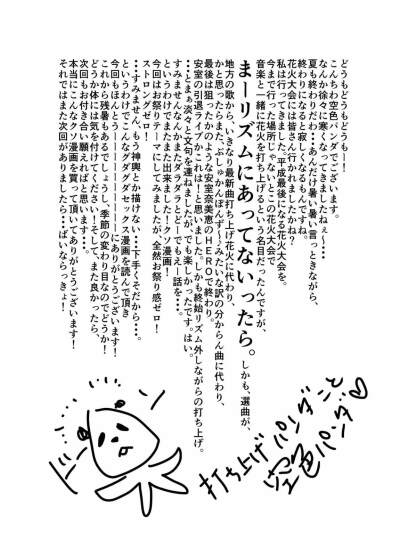 どうもどうもどうもー！
こんちわ空色パンダでございます。
なんか徐々に寒くなってきましたねぇ〜・・・
夏も終りだわ・・・あんだけ暑い暑い言っときながら、
終わりになると寂しくなるもんですね。
花火大会には皆さん行かれましたかね？
私は行ってきました。平成最後になる花火大会を。
今まで行った場所じゃないこの花火大会で
音楽と一緒に花火を打ち上げるという名目だったんですが、
まーリズムにあってないったら。しかも、選曲が、
地方の歌から、いきなり最新曲打ち上げ花火に代わり、
かと思ったらまた、ぷしゅかんぽんず〜♪みたいな訳の分からん曲に代わり、
最後は狙ったかのような安室奈美恵のHEROで終わり。
安室の引退ライブかこれは！と思いました。しかも終始リズム外しながらの打ち上げ。
・・とまぁ淡々と文句を連ねましたが、でも楽しかったです。はい。
すみませんなんかまたダラダラとどーでもえー話を・・・
というわけでまた出来ました！クソ漫画！
今回はお祭りテーマにしてみましたが、全然お祭り感ゼロ！
ストロングゼロ！
・・・すみません、もう神輿とか描けない・・・下手くそだから・・・。
というわけでこんなグダグダセックス漫画を読んで頂き
今回もほんとうにーーーーーーにありがとうございます！
これから残暑もあるでしょうし、季節の変わり目なのでどうか！
どうか体には気を付けてください！そして、また良かったら、
次回もお付き合い願えればと思います・・・。
本当にこんなクソ漫画を買って頂いてありがとうございます！
それではまた次回がありましたら・・ばいならっきょ！
打ち上げパンダこと
空色パンダ♡